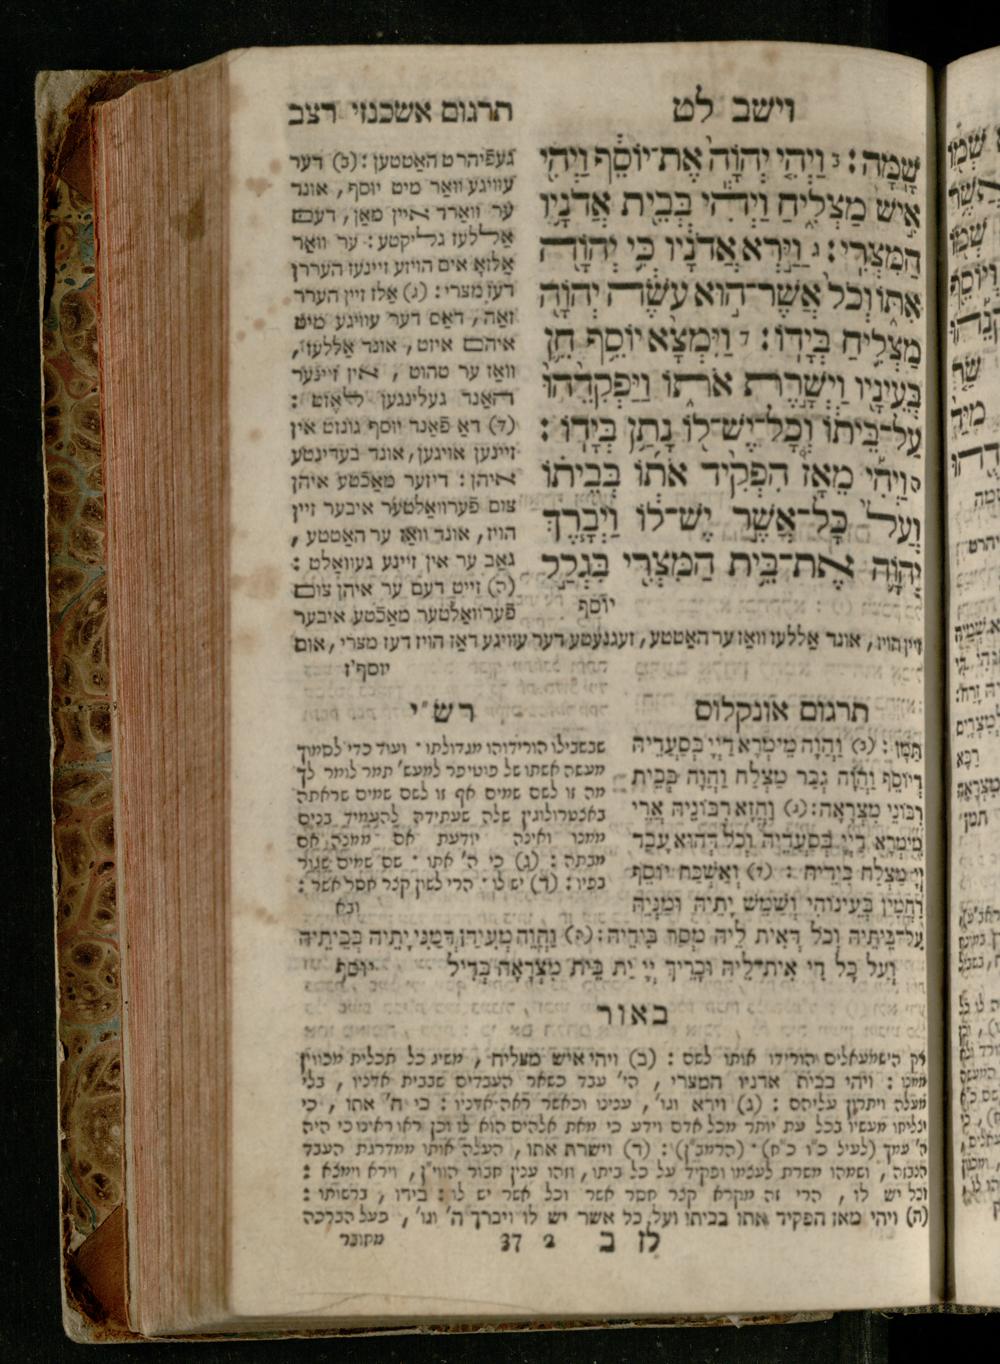 וישב לט
תרגום אשכנזי רצב
שָׁמָּה׃ ב וַיְהִי יְהוָֹה אֶת־יוֹסֵף וַיְהִי
אִישׁ מַצְלִיחַ וַיְהִי בְּבֵית אֲדֹנָיו
הַמִּצְרִי׃ ג וַיַּרְא אֲדֹנָיו כִּי יְהוָֹה
אִתּוֹ וְכֹל אֲשֶׁר־הוּא עֹשֶׂה יְהוָֹה
מַצְלִיחַ בְּיָדוֹ׃ ד וַיִּמְצָא יוֹסֵף חֵן
בְּעֵינָיו וַיְשָׁרֶת אֹתוֹ וַיַּפְקִדֵהוּ
עַל־בֵּיתוֹ וְכָל־יֶשׁ־לוֹ נָתַן בְּיָדוֹ׃
ה וַיְהִי מֵאָז הִפְקִיד אֹתוֹ בְּבֵיתוֹ
וְעַל כָּל־אֲשֶׁר יֶשׁ־לוֹ וַיְבָרֶךְ
יְהוָֹה אֶת־בֵּית הַמִּצְרִי בִּגְלַל
יוסף
געפיהרט האַטטען : (ב) דער
עוויגע וואַר מיט יוסף , אונד
ער וואַרד איין מאַן , דעם
אַללעז גליקטע : ער וואַר
אַלזאָ אים הויזע זיינעז העררן
דעז מצרי : (ג) אַלז זיין הערר
זאַה , דאַס דער עוויגע מיט
איהם איזט , אונד אַללעז ,
וואַז ער טהוט , אין זיינער
האַנד געלינגען לאַזט :
(ד) דאַ פאַנד יוסף גונזט אין
זיינען אויגען , אונד בעדינטע
איהן : דיזער מאַכטע איהן
צום פערוואַלטער איבער זיין
הויז , אונד וואַז ער האַטטע ,
גאַב ער אין זיינע געוואַלט :
(ה) זייט דעם ער איהן צום
פערוואַלטער מאַכטע איבער
זיין הויז , אונד אַללעז וואַז ער האַטטע , זעגנעטע דער עוויגע דאַז הויז דעז מצרי , אום
יוסף'ז
תרגום אונקלוס
תַּמָּן : (ב) וַהֲוָה מֵימְרָא דַיְיָ בְּסַעֲדֵיהּ
דְּיוֹסֵף וַהֲוָה גְבַר מַצְלַח וַהֲוָה בְּבֵית
רִבּוֹנֵי מִצְרָאָה : (ג) וַחֲזָא רִבּוֹנֵיהּ אֲרֵי
מֵימְרָא דַיְיָ בְּסַעֲדֵיהּ וְכֹל דְּהוּא עָבֵד
יְיָ מַצְלַח בִּידֵיהּ : (ד) וְאַשְׁכַּח יוֹסֵף
רַחֲמִין בְּעֵינוֹהִי וְשַׁמֵּשׁ יָתֵיהּ וּמַנְיֵהּ
עַל־בֵּיתֵיהּ וְכֹל דְּאִית לֵיהּ מְסַר בִּידֵיהּ : (ה) וַהֲוָה מֵעִידָן דְּמַנִּי יָתֵיהּ בְּבֵיתֵיהּ
וְעַל כָּל דִּי אִית־לֵיהּ וּבָרִיךְ יְיָ יַת בֵּית מִצְרָאָה בְּדִיל יוסף
רש״י
שבשבילו הורידוהו מגדולתו · ועוד כדי לסמוך
מעשה אשתו של פוטיפר למעש' תמר לומר לך
מה זו לשם שמים אף זו לשם שמים שראתה
באצטרולוגין שלה שעתידה להעמיד בנים
ממנו ואינה יודעת אם ממנה אם
מבתה : (ג) כי ה' אתו · שם שמים שגור
בפיו : (ד) יש לו · הרי לשון קצר חסר אשר :
באור
רק הישמעאלים הורידו אותו לשם : (ב) ויהי איש מצליח , משיג כל תכלית מכוון
ממנו : ויהי בבית אדניו המצרי , הי' עבד כשאר העבדים שבבית אדניו , בלי
מעלה ויתרון עליהם : (ג) וירא וגו' , ענינו וכאשר ראה אדניו : כי ה' אתו , כי
יצליחו מעשיו בכל עת יותר מכל אדם וידע כי מאת אלהים הוא לו וכן ראו ראינו כי היה
ה' עמך (לעיל כ״ו כ״ח) · (הרמב״ן) : (ד) וישרת אתו , העלה אותו ממדרגת העבד
הנבזה , ושמהו משרת לעצמו ופקיד על כל ביתו , וזהו ענין חבור הווי״ן , וירא וימצא :
וכל יש לו , הרי זה מקרא קצר חסר אשר וכל אשר יש לו : בידו , ברשותו :
(ה) ויהי מאז הפקיד אתו בביתו ועל כל אשר יש לו ויברך ה' וגו' , פעל הברכה
לז ב 2 37
מחובר